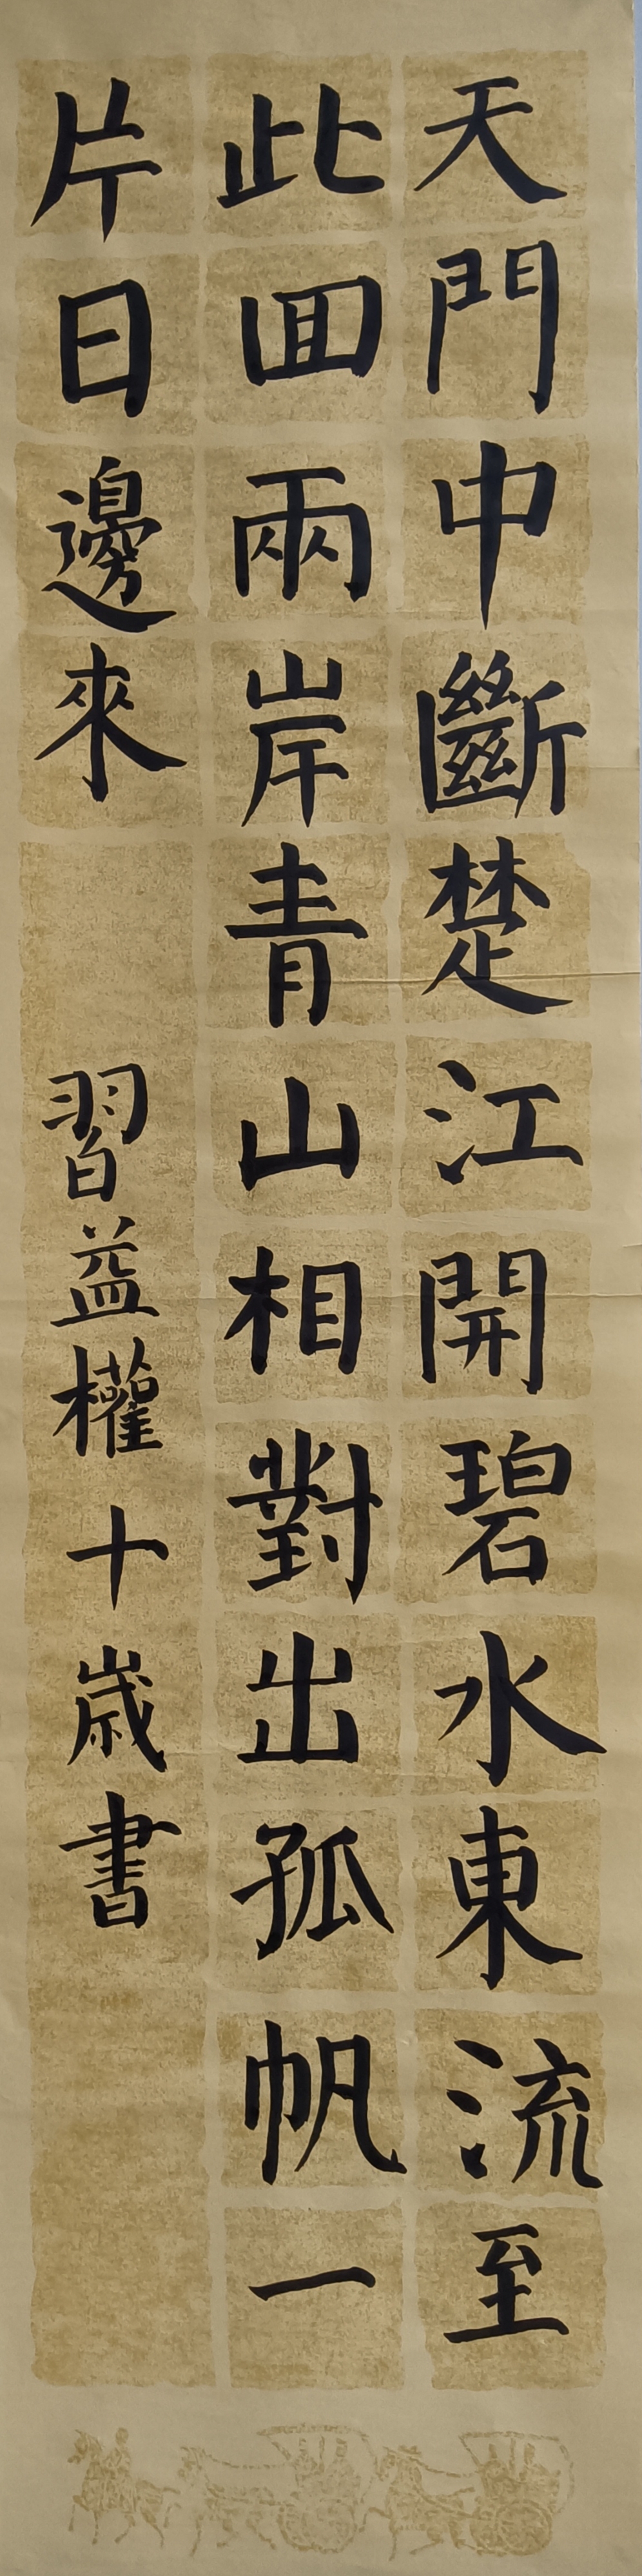 天門中斷楚江開碧水東流至
此回兩岸青山相對出孤帆一
片日邊來 習益權十歲書